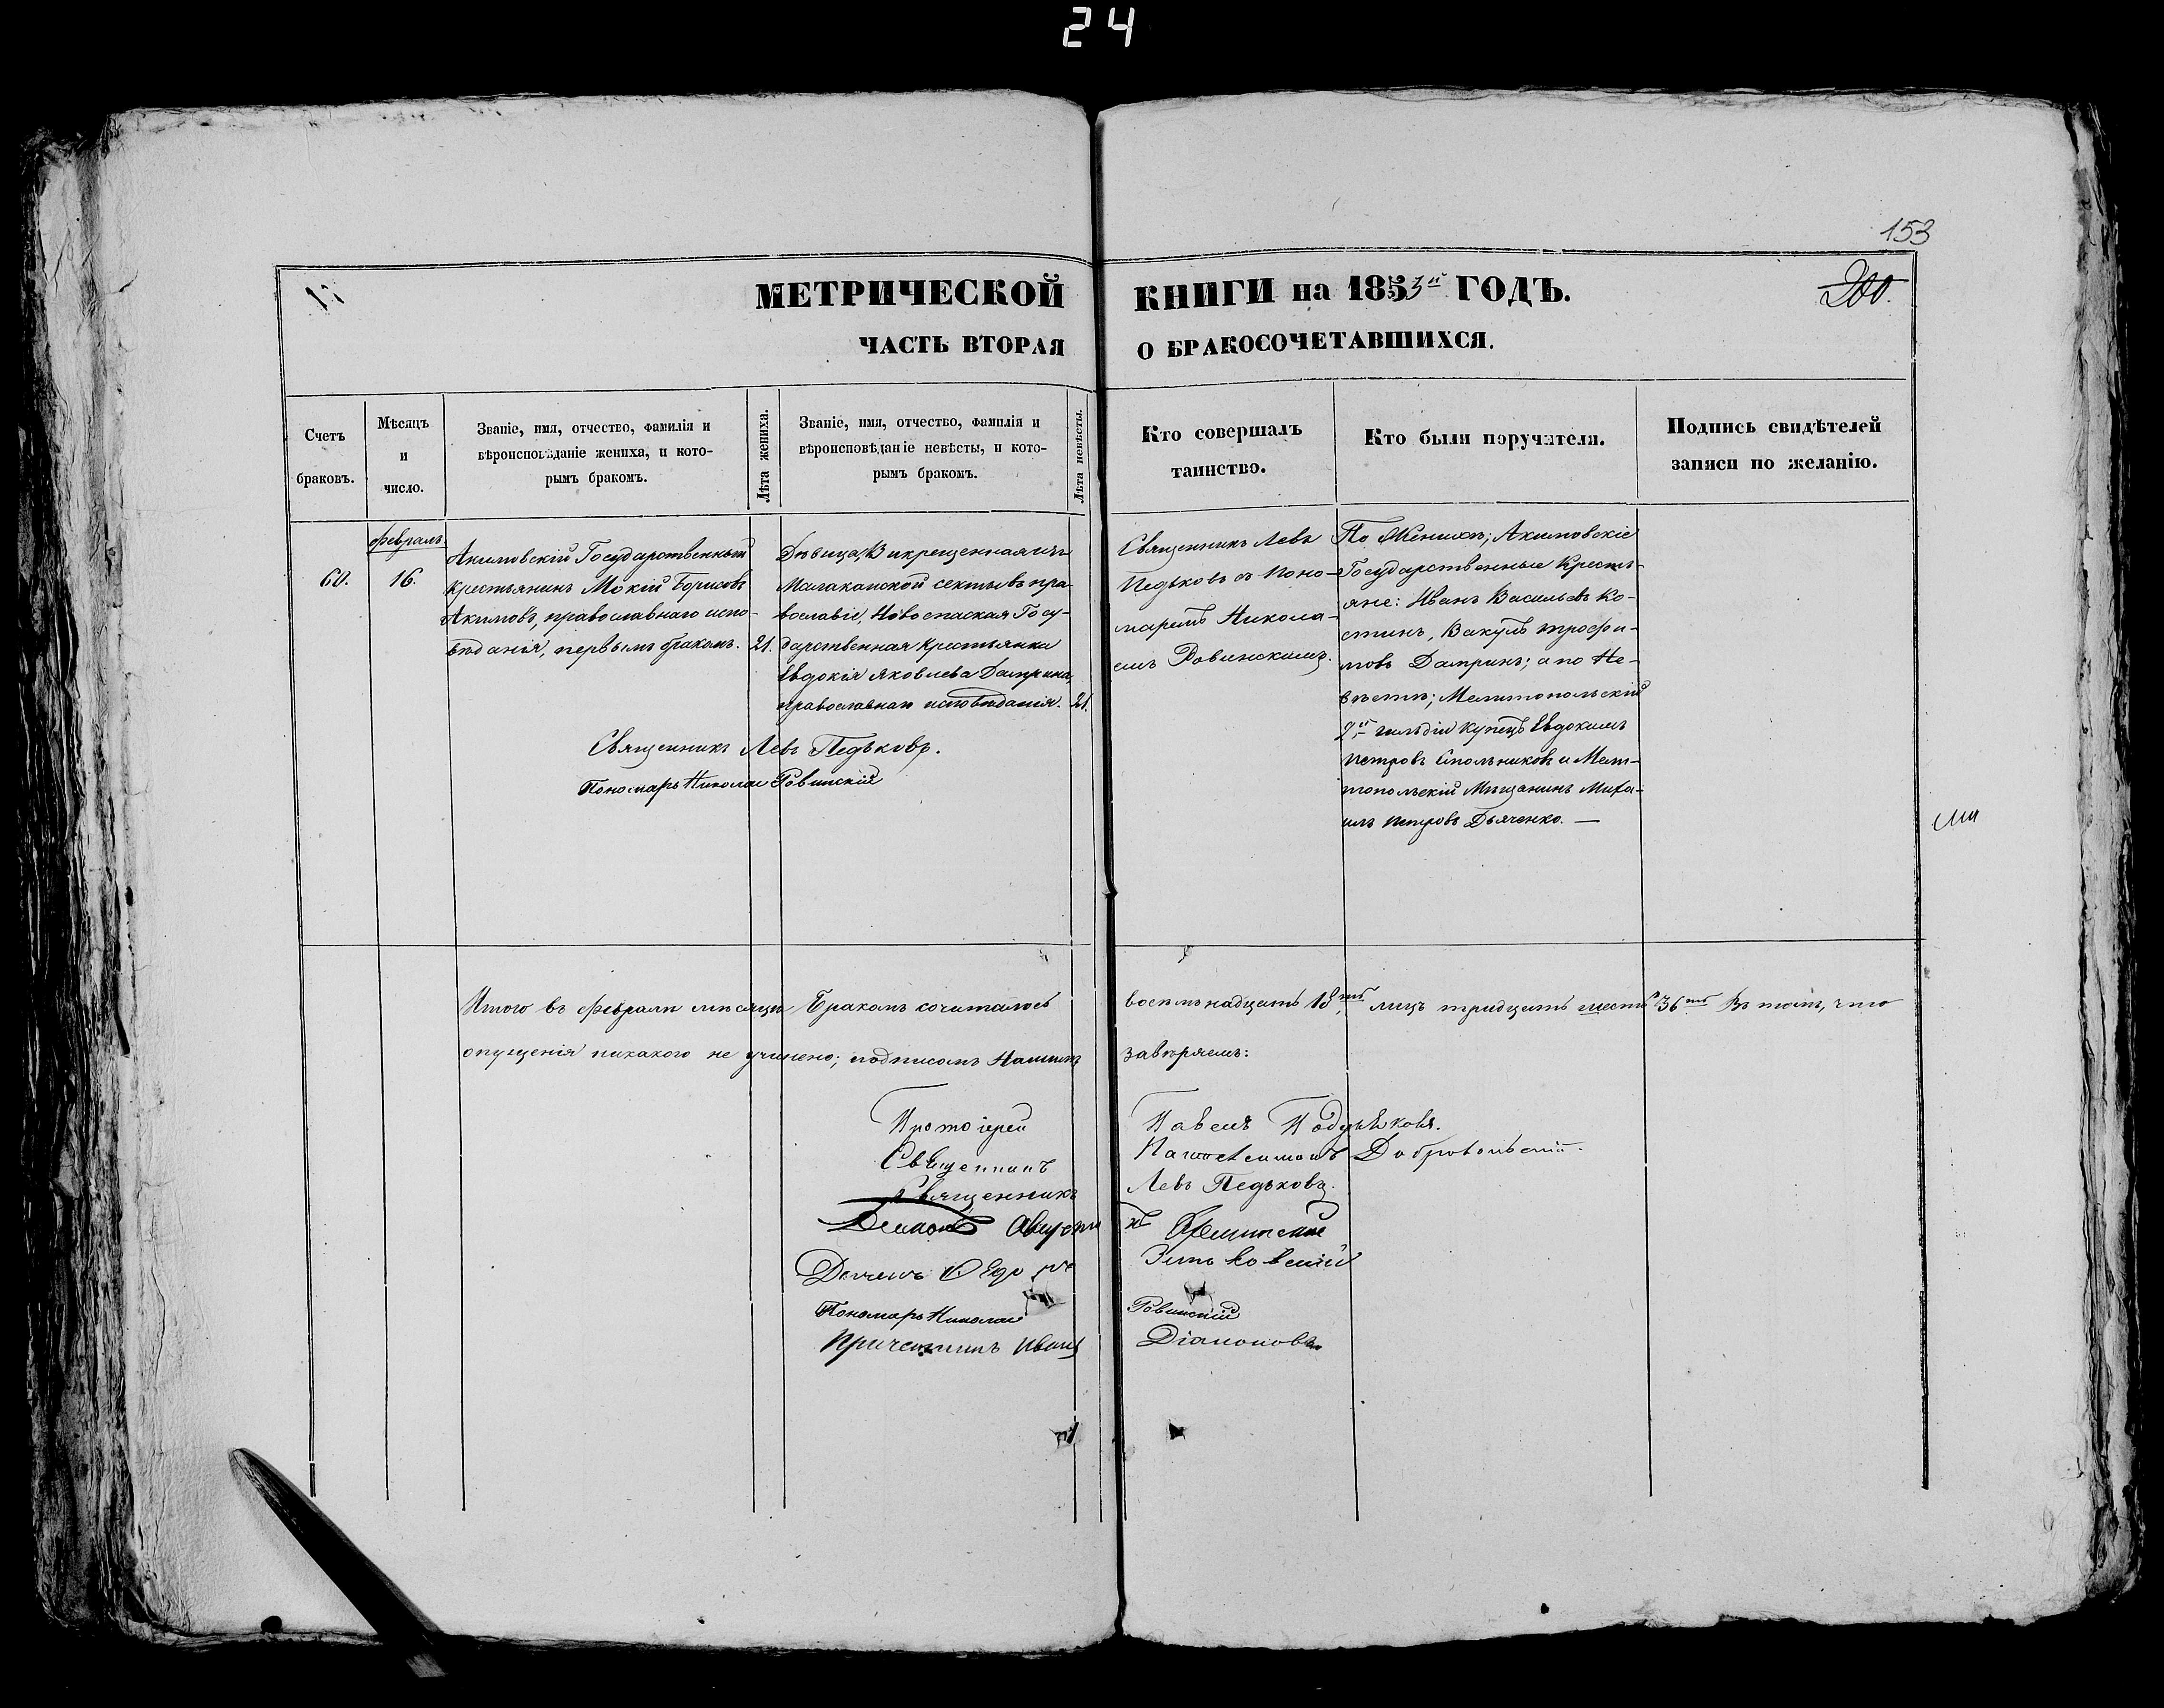 24
153
МЕТРИЧЕСКОЙ КНИГИ на 1853й ГОДЪ.
200.
ЧАСТЬ ВТОРАЯ О БРАКОСОЧЕТАВШИХСЯ.
Счетъ браковъ.
Мѣсяцъ и число.
Званіе, имя, отчество, фамилія и
вѣроисповѣданіе жениха, и кото-
рымъ бракомъ.
Лѣта жениха.
Званіе, имя, отчество, фамилія и
вѣроисповѣданіе невѣсты, и кото-
рымъ бракомъ.
Лѣта невѣсты.
Кто совершалъ
таинство.
Кто были поручители.
Подпись свидѣтелей
записи по желанію.
60.
Февраль
16.
Акимовскій Государственный
крестьянинъ Мокій Борисовъ
Акимовъ, православнаго испо-
вѣданія, первымъ бракомъ.
21.
Дѣвица, Викрещенная изъ
Малаканской секты въ пра-
вославіе, Новоспаская Госу-
дарственная крестьянка
Евдокія Яковлева Дамприна,
православнаго исповѣданія.
21.
Священникъ Левъ
Педьковъ съ Поно-
маремъ Никола-
емъ Ровинскимъ.
По Женихѣ; Акимовскіе
Государственные Кресть-
яне: Иванъ Васильевъ Ко-
стинъ, Вакулъ Трофи-
мовъ Дампринъ; а по Не-
вѣстѣ; Мелитопольскій
2й гильдіи купецъ Евдокимъ
Петровъ Стольниковъ и Мели-
топольскій Мѣщанинъ Миха-
илъ Петровъ Дьяченко. —
Священникъ Левъ Педьковъ.
Пономарь Николай Ровинскій
Итого въ Февралѣ мѣсяцѣ Бракомъ сочиталось восемьнадцать 18ть, лицъ тридцать шесть 36ть Въ томъ, что
опущенія никакого не учинено; подписомъ Нашимъ завѣряемъ:
Протоіерей Павелъ
Священникъ Добровольскій
Священникъ Левъ Педьковъ.
Пономарь Николай Ровинскій
Причетникъ Иванъ Діаконовъ